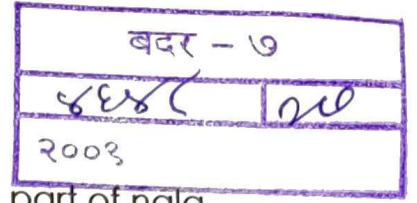 बदर - ७
४६४८
२००९
part of nala